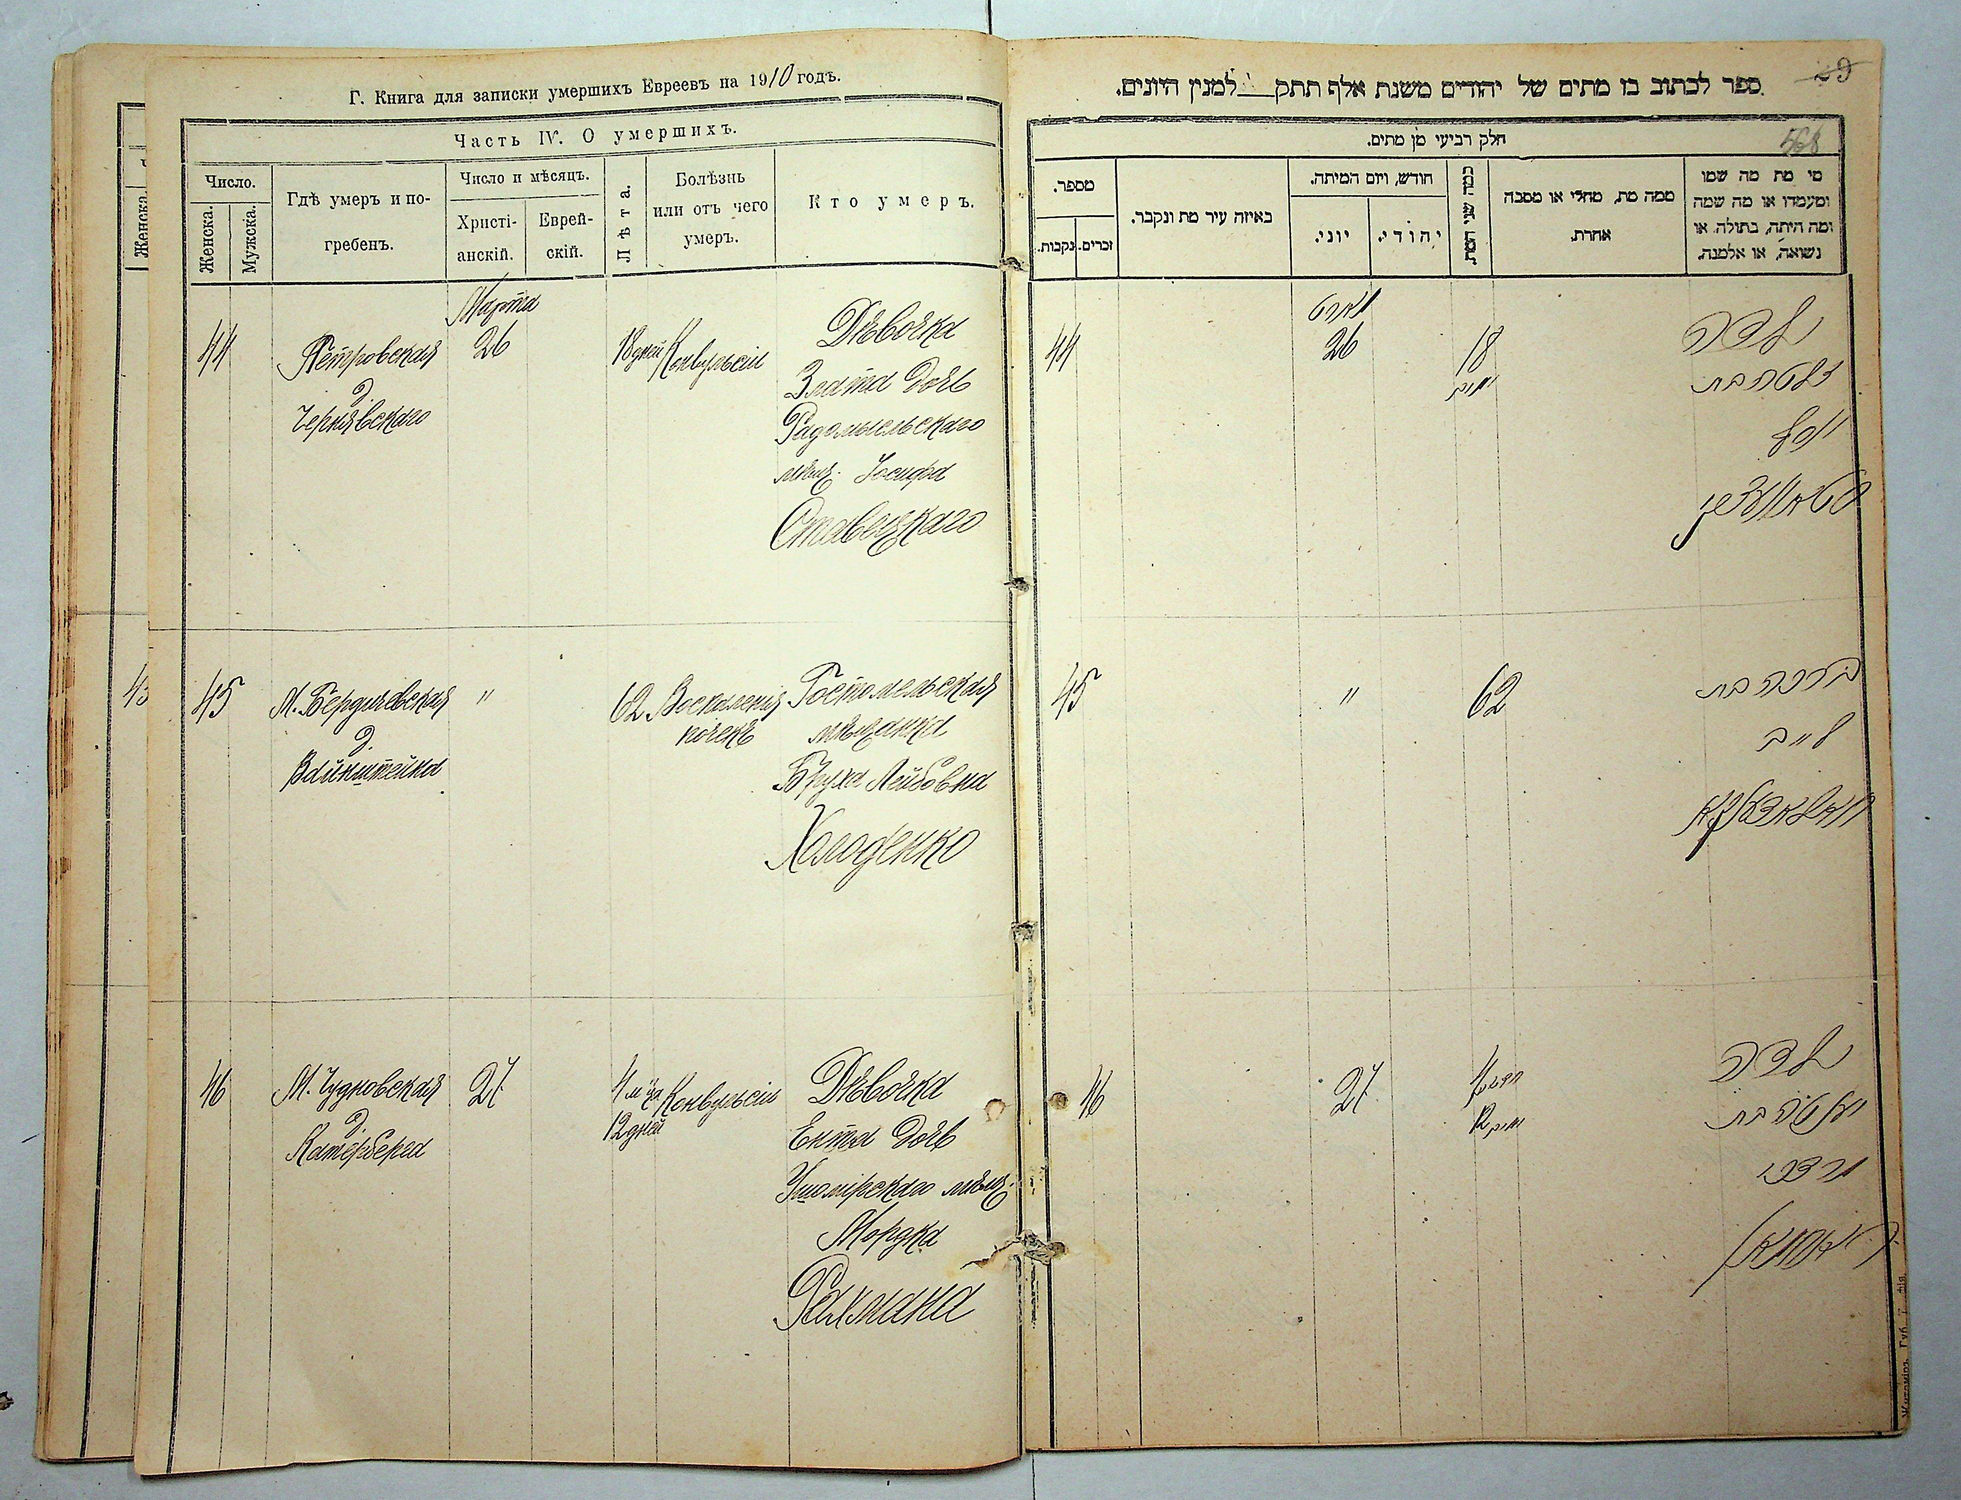 Г. Книга для записки умершихъ Евреевъ на 1910 годъ.
Часть IV. О умершихъ.
Число.
Женска.
Мужска.
Гдѣ умеръ и по-
гребенъ.
Число и мѣсяцъ.
Христі-
анскій.
Еврей-
скій.
Лѣта.
Болѣзнь
или отъ чего
умеръ.
Кто умеръ.
44
Петровская
д.
Чернявскаго
Марта
26
18 дней
Конвульсіи
Дѣвочка
Злата дочь
Радомысльскаго
мѣщ. Іосифа
Ставецкаго
45
М. Бердичевская
д.
Вайнштейна
"
62
Воспаленія
почекъ
Гостомельская
мѣщанка
Бруха Лейбовна
Холоденко
46
М. Чудновская
д.
Катербера
27
4 м-ца
12 дней
Конвульсіи
Дѣвочка
Ента дочь
Ушомірскаго мѣщ.
Мордка
Рахмана
Женска.
43
29
568
ספר לכתוב בו מתים של יהודים משנת אלף תתק למנין היונים.
חלק רביעי מן מתים.
מספר.
נקבות.
זכרים.
באיזה עיר מת ונקבר.
חודש, ויום המיתה.
יוני.
יהודי.
כמה שני המת.
ממה מת, מחלי או מסבה
אחרת.
מי מת מה שמו
ומעמדו או מה שמה
ומה היתה, בתולה או
נשואה, או אלמנה.
44
מארט
26
18
ימים
ילדה
זלאטה בת
יוסף
45
"
62
ברכה בת
לייב
כאלאדענקא
46
27
4 חדשים
12 ימים
ילדה
יענטה בת
מרדכי
ראכמאן